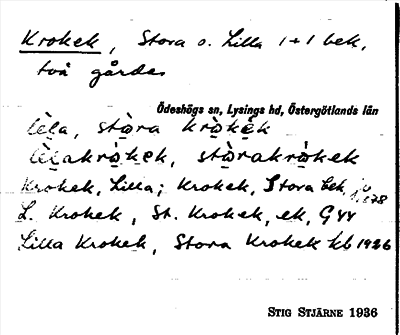 Krokek, Stora o. Lilla 1+1 bek,
två gårdar
Ödeshögs sn, Lysings hd, Östergötlands län
lèla, stòra kròkèk
lèlakròkek, stòrakròkek
Krokek, Lilla; Krokek, Stora bek, ju 278
L. Krokek, St. Krokek, ek, G 44
Lilla Krokek, Stora Krokek kb 1926
STIG STJÄRNE 1936